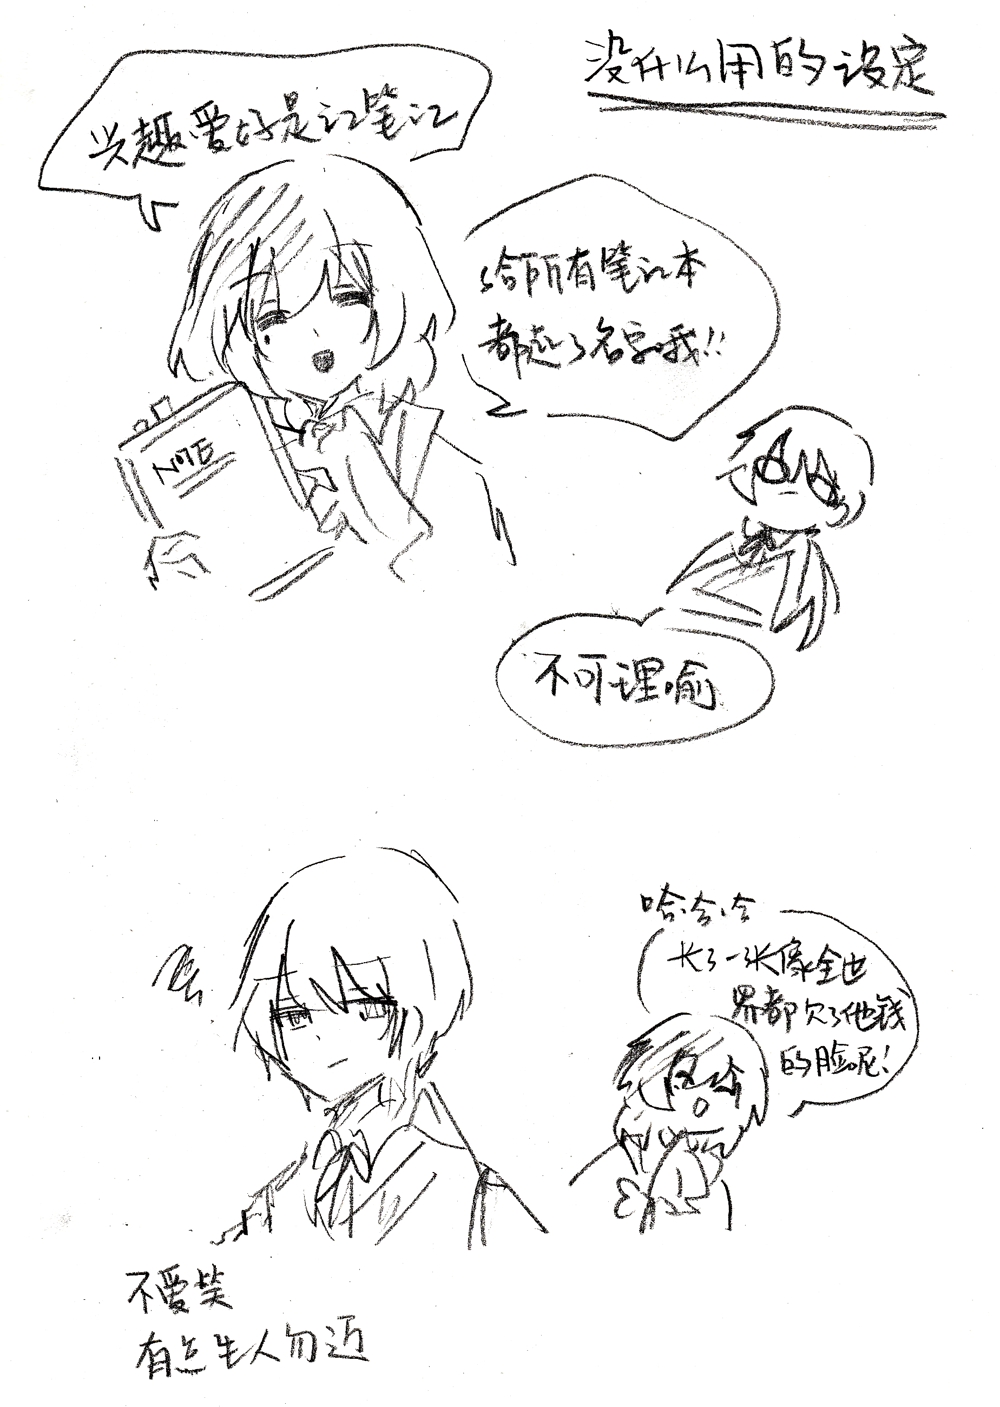 没什么用的设定
兴趣爱好是记笔记
给所有笔记本
都起了名字哦!!
NOTE
不可理喻
哈哈哈
长了一张像全世
界都欠了他钱
的脸呢!
不爱笑
有点生人勿近